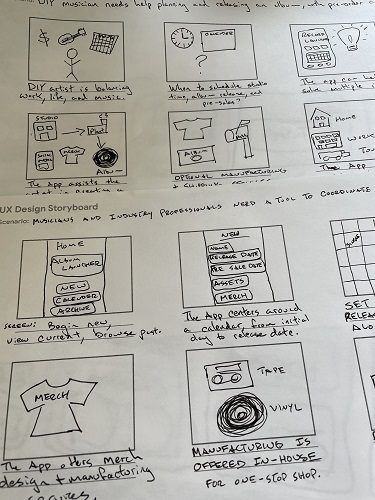 DIY musician needs help planning and releasing an album, with pre-order
$
CALENDAR
DIY artist is balancing
work, life, and music.
?
When to schedule studio
time, album release, and
pre-sales?
RELEASE
The app can
solve multiple
STUDIO
MERCH
Album
The App assists the
ALBUM
OPTIONAL MANUFACTURING
Home
WORK
The App
UX Design Storyboard
Scenario: MUSICIANS AND INDUSTRY PROFESSIONALS NEED A TOOL TO COORDINATE
HOME
ALBUM
LAUNCHER
NEW
CALENDER
ARCHIVE
SCREEN: Begin new,
view current, browse past.
NEW
NAME
RELEASE DATE
PRE SALE DATE
ASSETS
MERCH
The App centers around
a calendar, from initial
day to release date.
SET
RELEAS
ALO
MERCH
The App offers Merch
design + manufacturing
TAPE
VINYL
MANUFACTURING IS
OFFERED IN-HOUSE
FOR ONE-STOP SHOP.